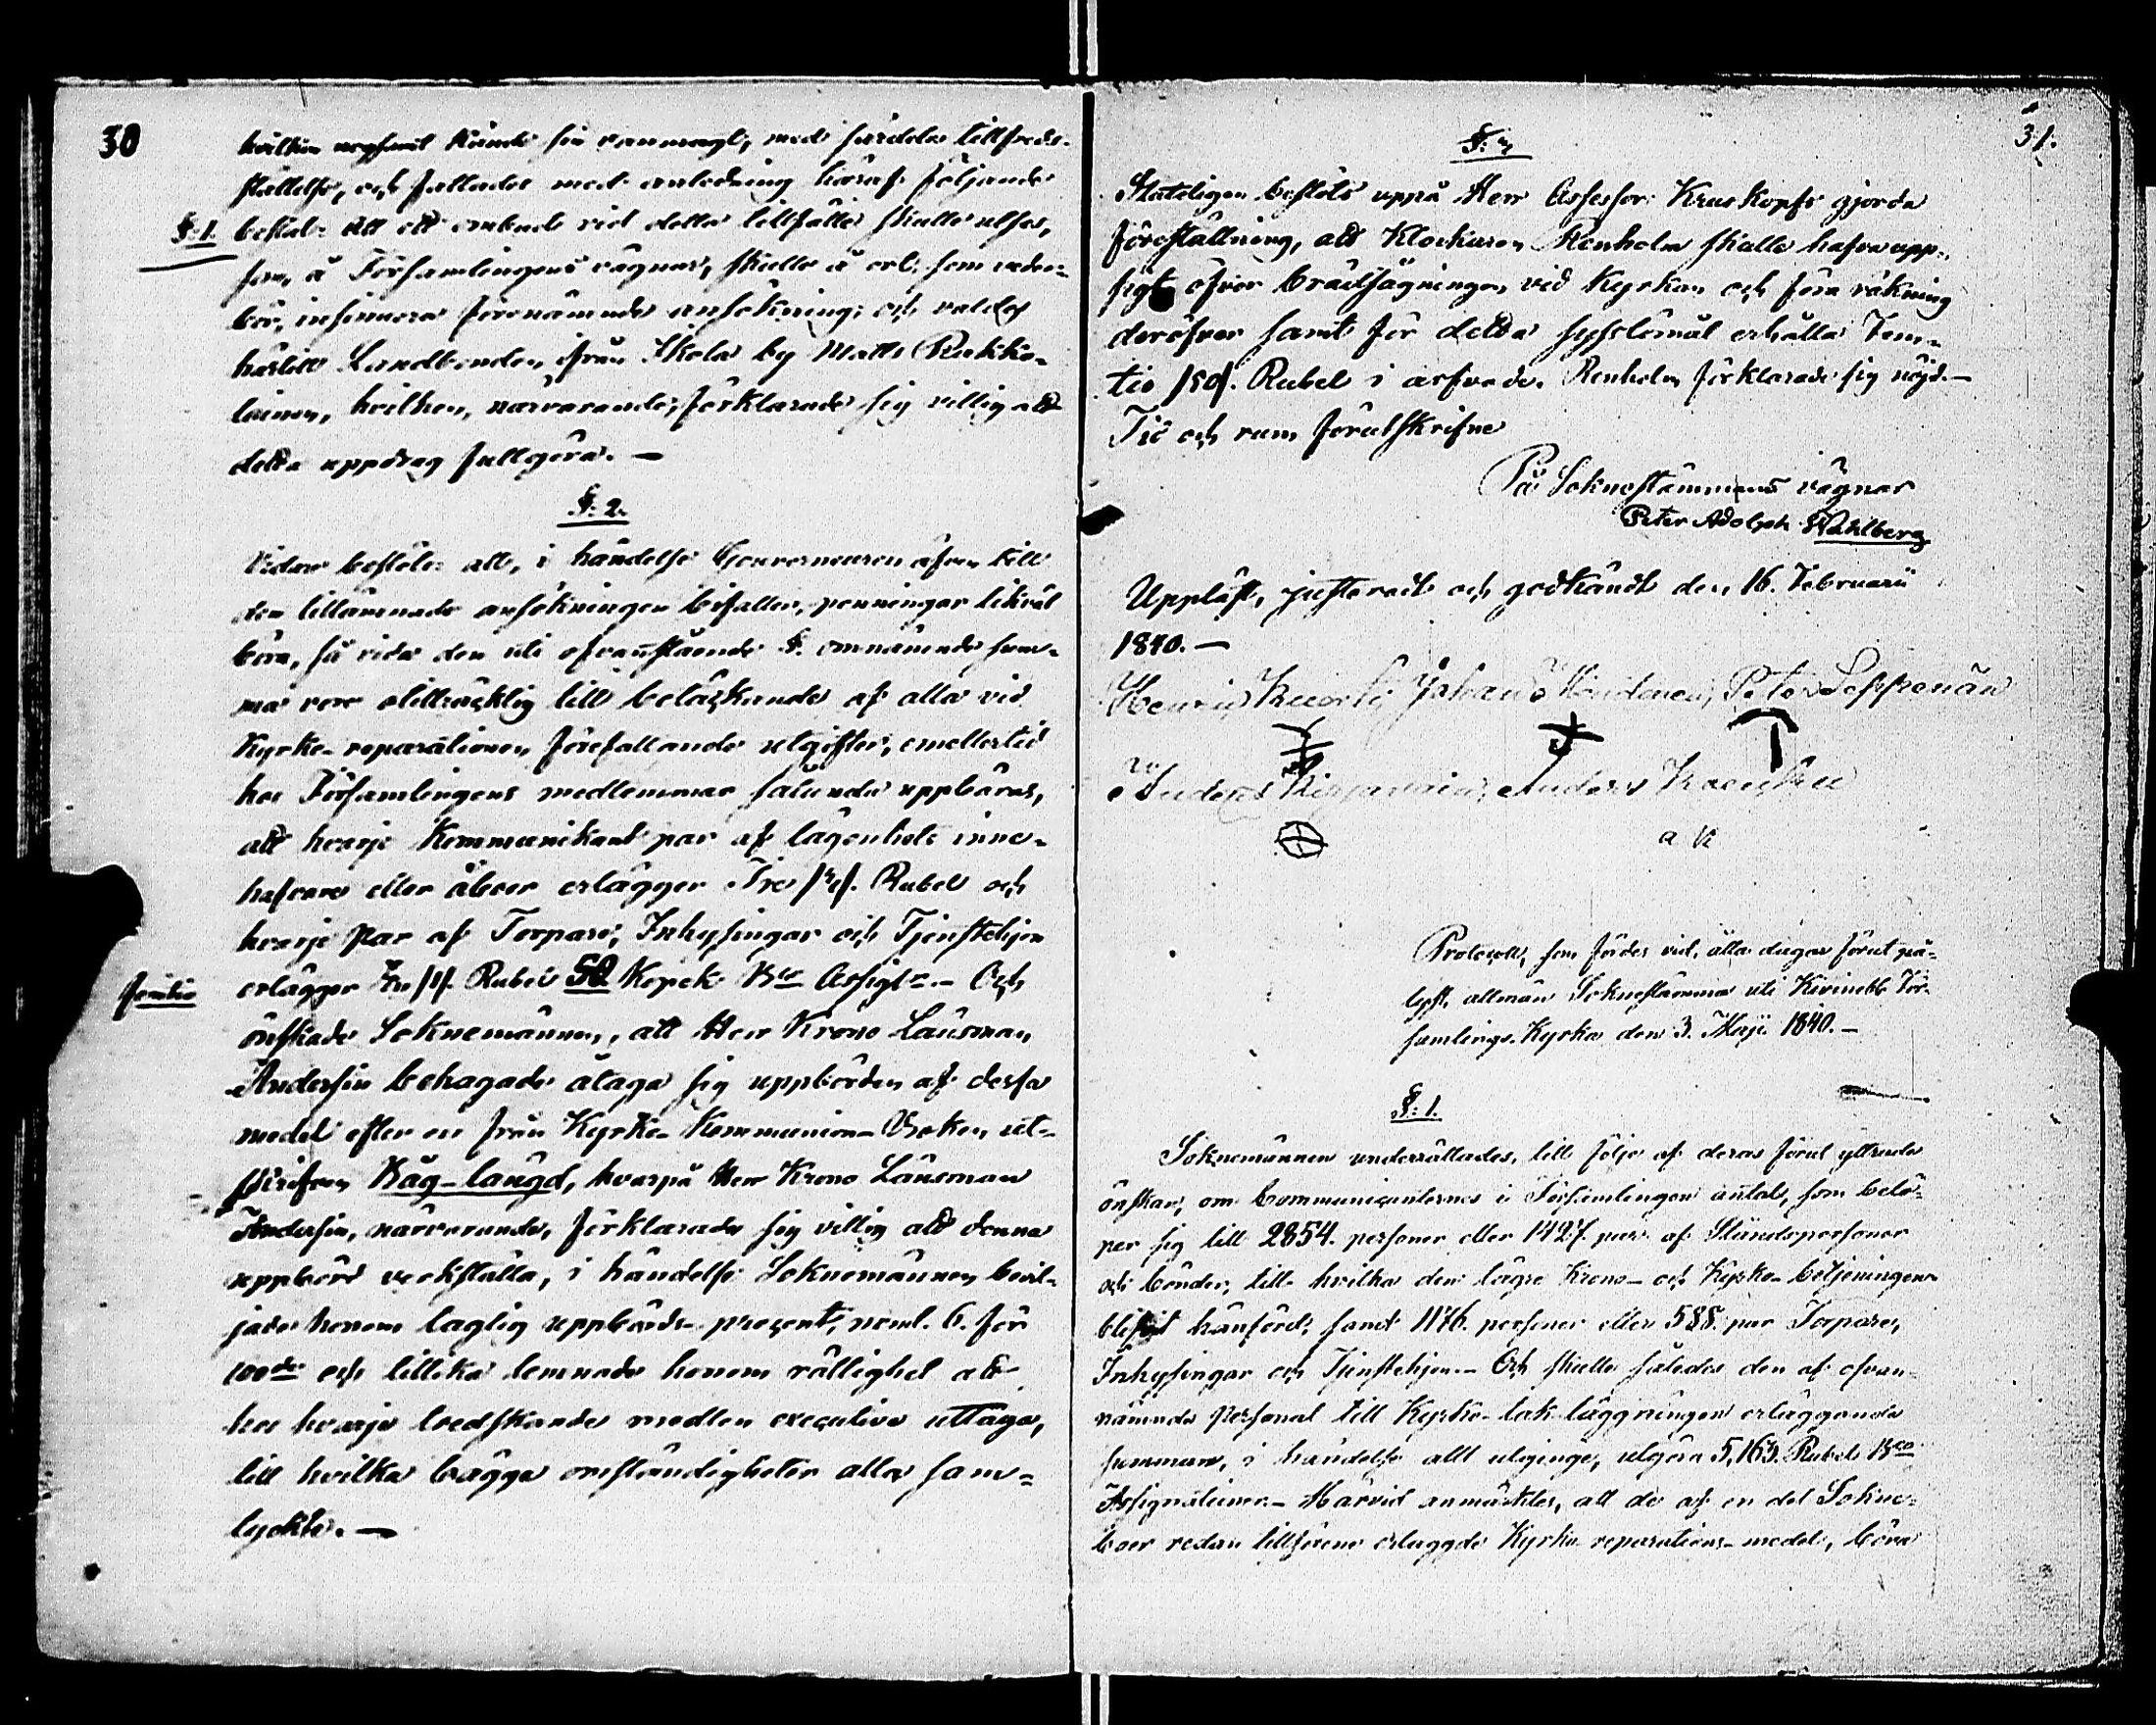 30
kände sin vanmagt, med särdeles tillfreds-
ställelse, och fattades med anledning häraf följande
§: 1. beslut: att ett ombud vid detta tillfälle skulle utses,
som, å Församlingens vägnar, skulle å ort, som veder-
bör, insinuera förenämnde ansökning; och valdes
härtill Landbonden från Skola by Matts Rukko-
lainen, hvilken, närvarande, förklarade sig villig att
detta uppdrag fullgöra. —
§: 2.
Vidare beslöts: att, i händelse Gouverneuren äfven till
den tillämnade ansökningen bifaller, penningar likväl
böra, så vida den uti ofvanstående §. omnämnde sum-
ma vore otillräcklig till betäckande af alla vid
Kyrko-reparationen förefallande utgifter, emellertid
hos Församlingens medlemmar sålunda uppbäras,
att hvarje Kommunikant par af lägenhets inne-
hafvare eller åboer erlägger Tre /3/. Rubel och
hvarje par af Torpare, Inhysingar och Tjenstehjon
femtio erlägger En /1/. Rubel 50 Kopek Bco Assigt.- Och
önskade Soknemännen, att Herr Krono Länsman
Andersin behagade åtaga sig uppbörden af dessa
medel efter en från Kyrko-Kommunion-Boken ut-
skrifven Wäg-längd, hvarpå Herr Krono Länsman
Andersin, närvarande, förklarade sig villig att denna
uppbörd verkställa, i händelse Soknemännen bevil-
jade honom laglig uppbörds-procent, neml. 6. för
100de och tillika lemnade honom rättighet att
hos hvarje tredskande medlem executive uttaga,
till hvilka bägge omständigheter alla sam-
tyckte. —
31.
§: 3
Stateligen beslöts uppå Herr Assessor Kruskopfs gjorda
föreställning, att Klockaren Renholm skulle hafva upp-
sigt öfver brädsågningen vid Kyrkan och föra räkning
deröfver samt för detta syslomål erhålla Fem-
tio /50/. Rubel i arfvode. Renholm förklarade sig nöjd.—
Tid och rum förutskrifne
På Soknestämmans vägnar
Peter Adolph Wahlberg
Uppläst, justeradt och godkändt den 16. Februarii
1840. —
Johan Peter Seppenän
Anders
a K
Protocoll, som fördes vid, åtta dagar förut på-
lyst, allmän Soknestämma uti Kivinebb För-
samlings Kyrka den 3. Maji 1840. —
§: 1.
Soknemännen underrättades, till följe af deras förut yttrade
önskan, om Communicanternes i Församlingen antal, som belö-
per sig till 2854. personer eller 1427. par af Ståndspersoner
och bönder, till hvilka den lägre Krono- och Kyrko-betjeningen
blifvit hänförd, samt 1176. personer eller 588. par Torpare,
Inhysingar och Tjenstehjon. — Och skulle således den af ofvan-
nämnde personal till Kyrko-tak-läggningen erläggande
summan, i händelse allt utginge, utgöra 5,163. Rubel Bco
Assignationer. — Härvid anmärktes, att de af en del Sokne-
boer redan tillförene erlaggde Kyrko-reparations-medel, böra